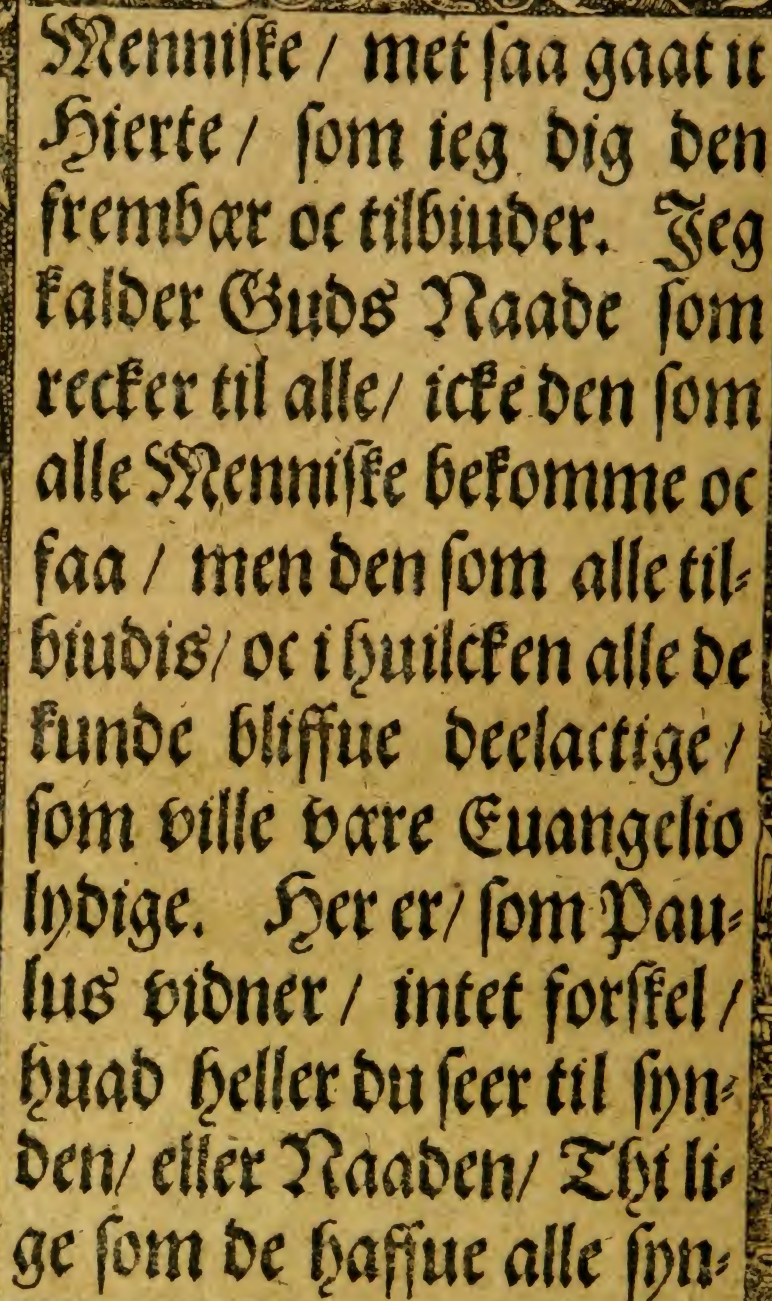 Menniſke / met ſaa gaat it
Hierte / ſom ieg dig den
frembær oc tilbiuder. Jeg
kalder Guds Naade ſom
recker til alle/ icke den ſom
alle Menniſke bekomme oc
faa / men den ſom alle til⸗
biudis/ oc i huilcken alle de
kunde bliffue deelactige /
ſom ville være Euangelio
lydige. Her er/ ſom Pau⸗
lus vidner / intet forſkel /
huad heller du ſeer til ſyn⸗
den/ eller Naaden/ Thi li⸗
ge ſom de haffue alle ſyn⸗